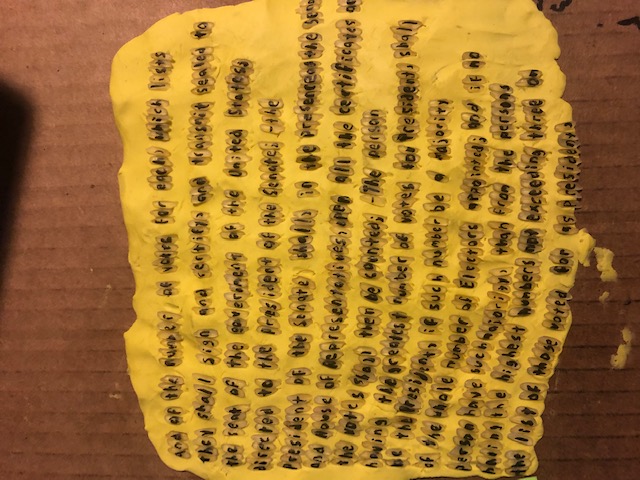 And of the number of votes for each; which lists
they shall sign and certify, and transmit sealed to
the seat of the government of the United States,
Directed to the President of the Senate; -the
President of the Senate shall, in the presence of the Sen
And House of Representatives, open all the certificates
the votes shall then be counted; -The person
having the greatest number of votes for President, shall
be the President, if such number be a majority
of the whole number of Electors appointed; and if no
Person have such majority, then from the persons
having the highest numbers not exceeding three on
the list of those voted for as President,